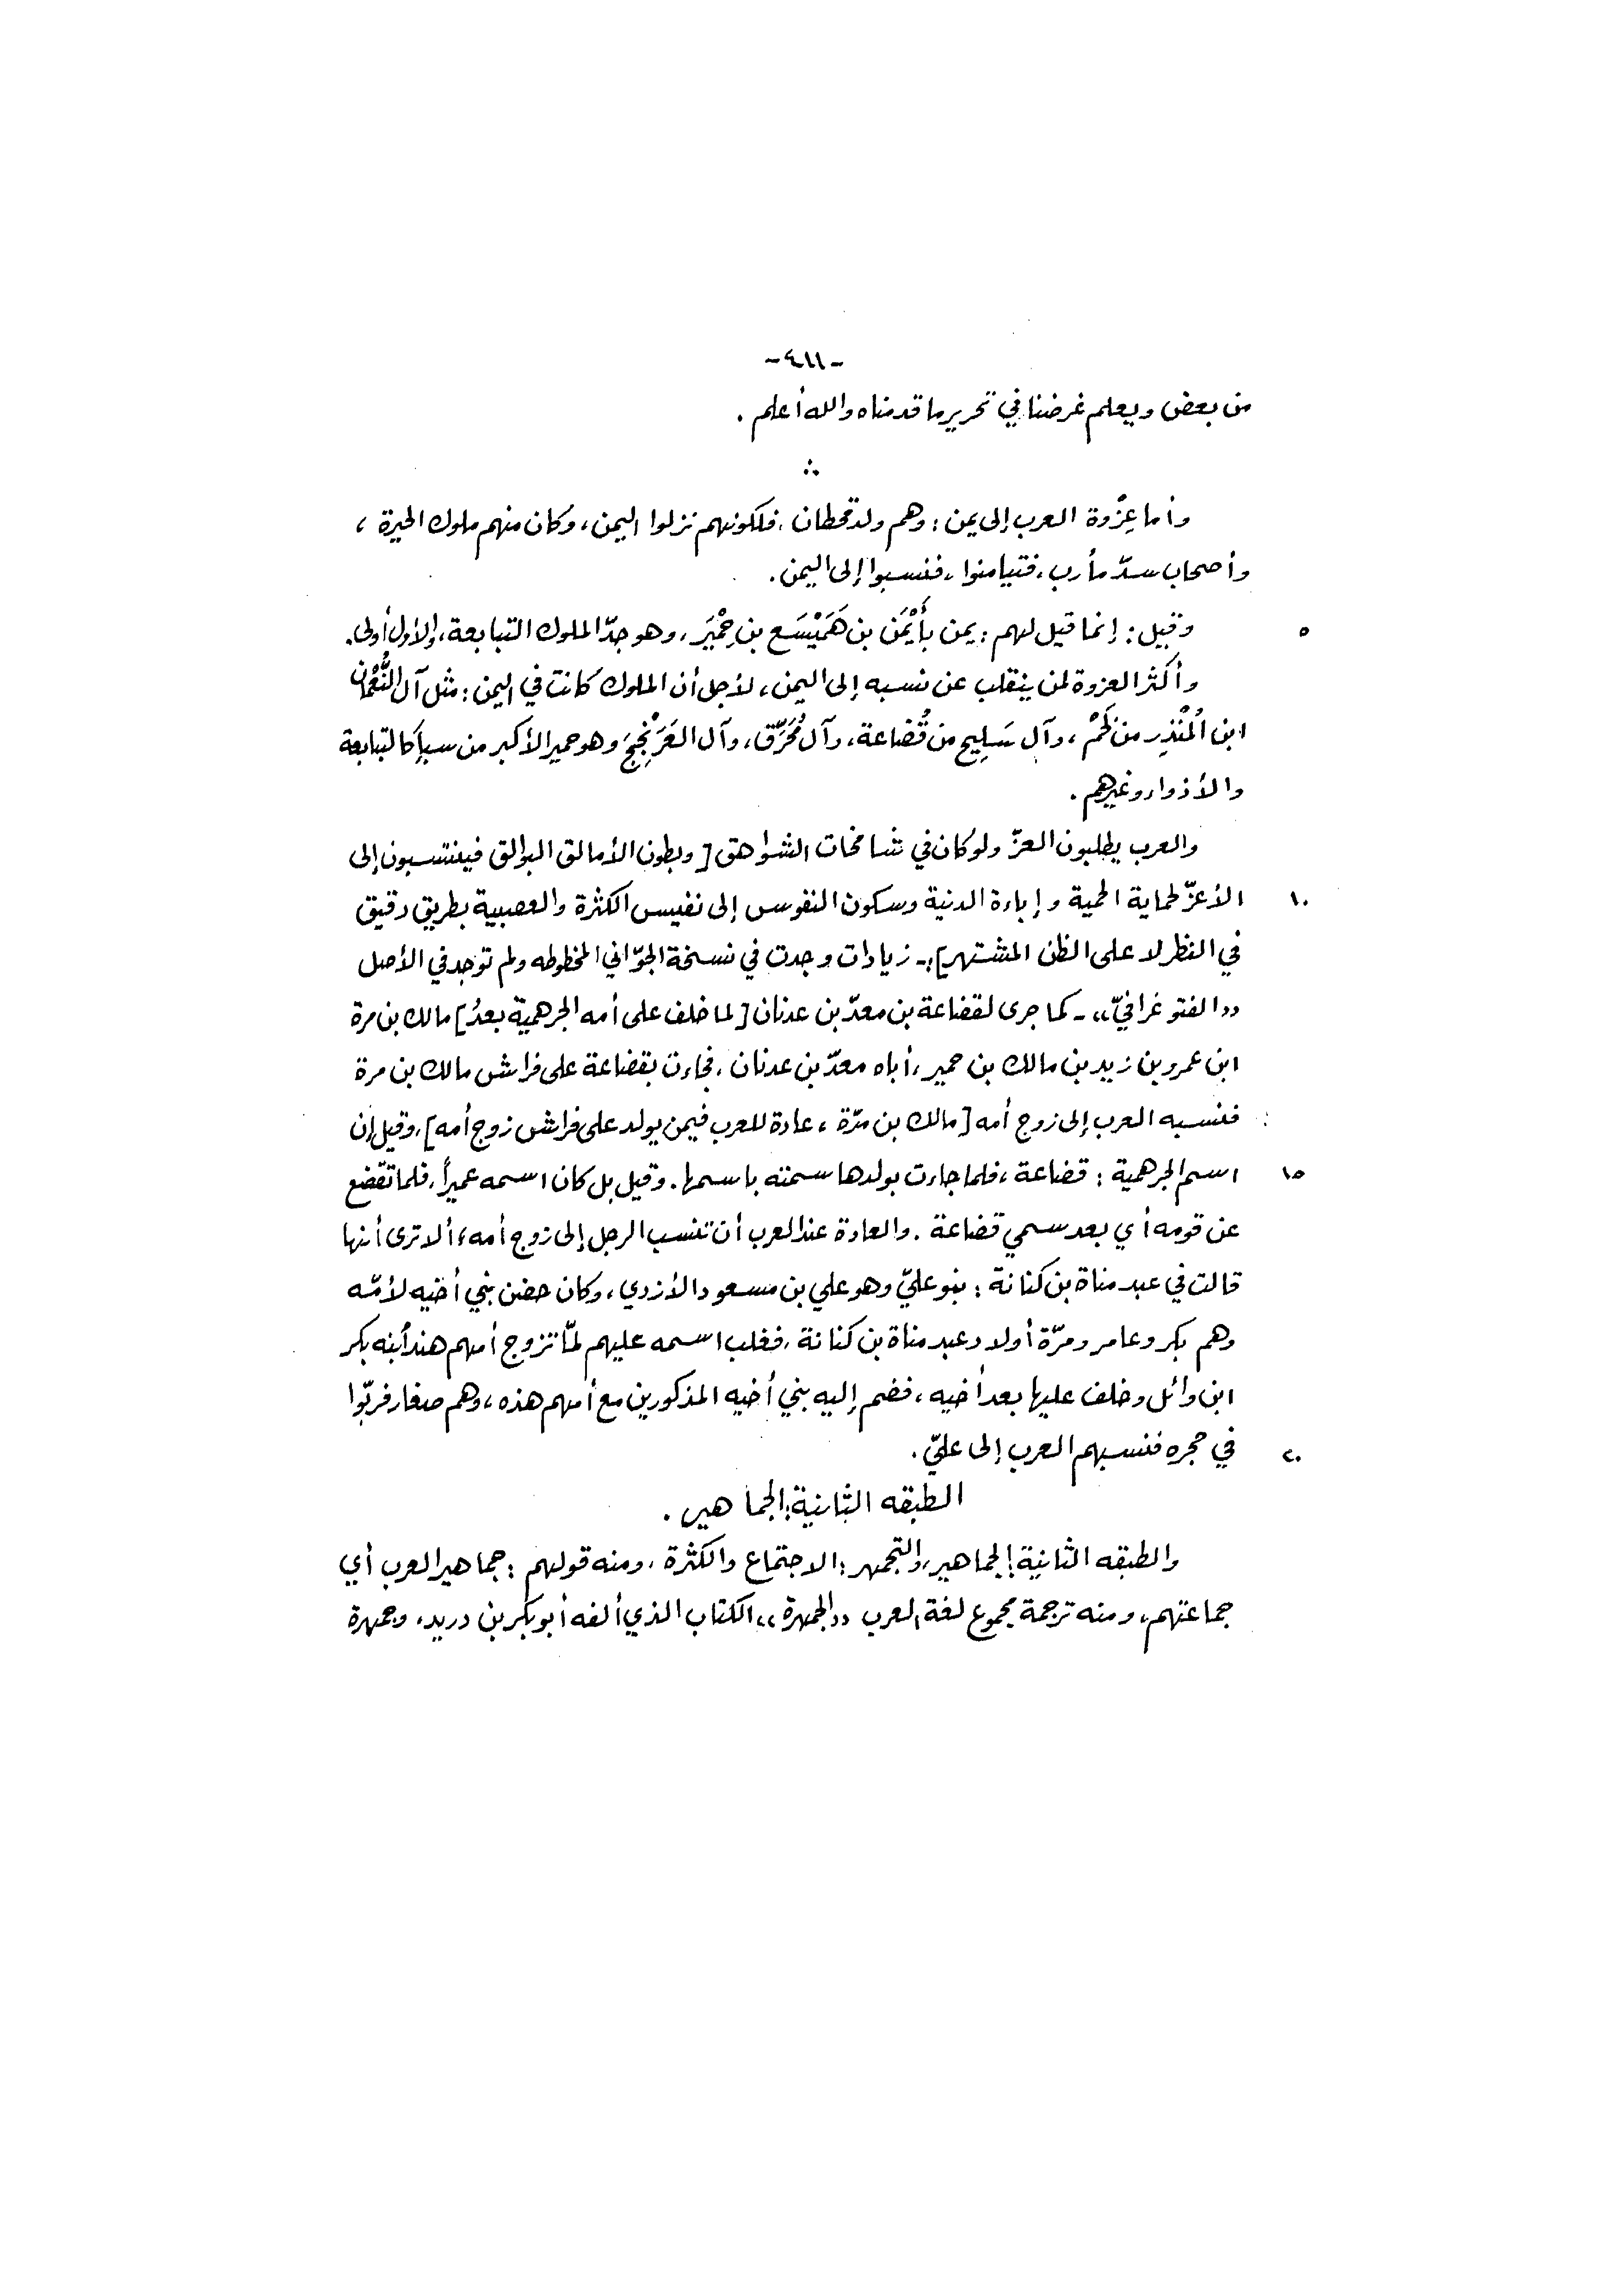 -٤١١-
من بعض ويعلم غرضنا في تحرير ما قدمناه والله أعلم .
وأما عِزْوة العرب إلى يمن : وهم ولد قحطان ، فلكونهم نزلوا اليمن ، وكان منهم ملوك الحيرة ،
وأصحاب سدّ مأرب ، فتيامنوا ، فنسبوا إلى اليمن .
٥ وقيل : إنما قيل لهم : يمن بأَيْمَن بن هَمَيْسَع بن حِمْيَر ، وهو جدّ الملوك التبابعة ، والأول أولى .
وأكثر العزوة لمن ينقلب عن نسبه إلى اليمن ، لأجل أن الملوك كانت في اليمن : مثل آل النُّعْمان
ابن المُنْذِر من لَخْم ، وآل سَلِيح من قُضاعة ، وآل مُحَرِّق ، وآل العَرَنْجِجَ وهو حمير الأكبر من سبأ كالتبابعة
والأذواء وغيرهم .
والعرب يطلبون العزّ ولو كان في شامخات الشواهق [ وبطون الأمالق البوالق فينتسبون إلى
١٠ الأعزّ لحماية الحمية وإباءة الدنية وسكون النفوس إلى نفيس الكثرة والعصبية بطريق دقيق
في النظر لا على الظن المشتهر ] ـ زيادات وجدت في نسخة الجوّاني المخطوطه ولم توجد في الأصل
« الفتوغرافيّ » ـ كما جرى لقضاعة بن معدّ بن عدنان [ لما خلف على أمه الجرهمية بعدُ ] مالك بن مرة
ابن عمرو بن زيد بن مالك بن حمير ، أباه معدّ بن عدنان ، فجاءت بقضاعة على فراش مالك بن مرة
فنسبه العرب إلى زوج أمه [ مالك بن مرّة ، عادة للعرب فيمن يولد على فراش زوج أمه ] ، وقيل إن
١٥ اسم الجرهمية : قضاعة ، فلما جاءت بولدها سمته باسمها . وقيل بل كان اسمه عميراً ، فلما تقضع
عن قومه أي بعد سمي قضاعة . والعادة عند العرب أن تنسب الرجل إلى زوج أمه ، ألا ترى أنها
قالت في عبد مناة بن كنانة : بنو عليّ وهو علي بن مسعود الأزدي ، وكان حضن بني أخيه لأمّه
وهم بكر وعامر ومرّة أولاد عبد مناة بن كنانة ، فغلب اسمه عليهم لمّا تزوج أمهم هند أبنه بكر
ابن وائل وخلف عليها بعد أخيه ، فضم إليه بني أخيه المذكورين مع أمهم هذه ، وهم صغار فربّوا
٢٠ في حجره فنسبهم العرب إلى عليّ .
الطبقه الثانية : الجماهير .
والطبقه الثانية : الجماهير ، والتجمهر : الاجتماع والكثرة ، ومنه قولهم : جماهير العرب أي
جماعتهم ، ومنه ترجمة مجموع لغة العرب « الجمهرة » ، الكتاب الذي ألفه أبو بكر بن دريد ، وجمهرة